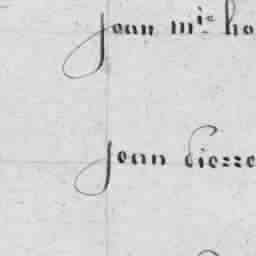 Jean m.ie
Jean Pierre